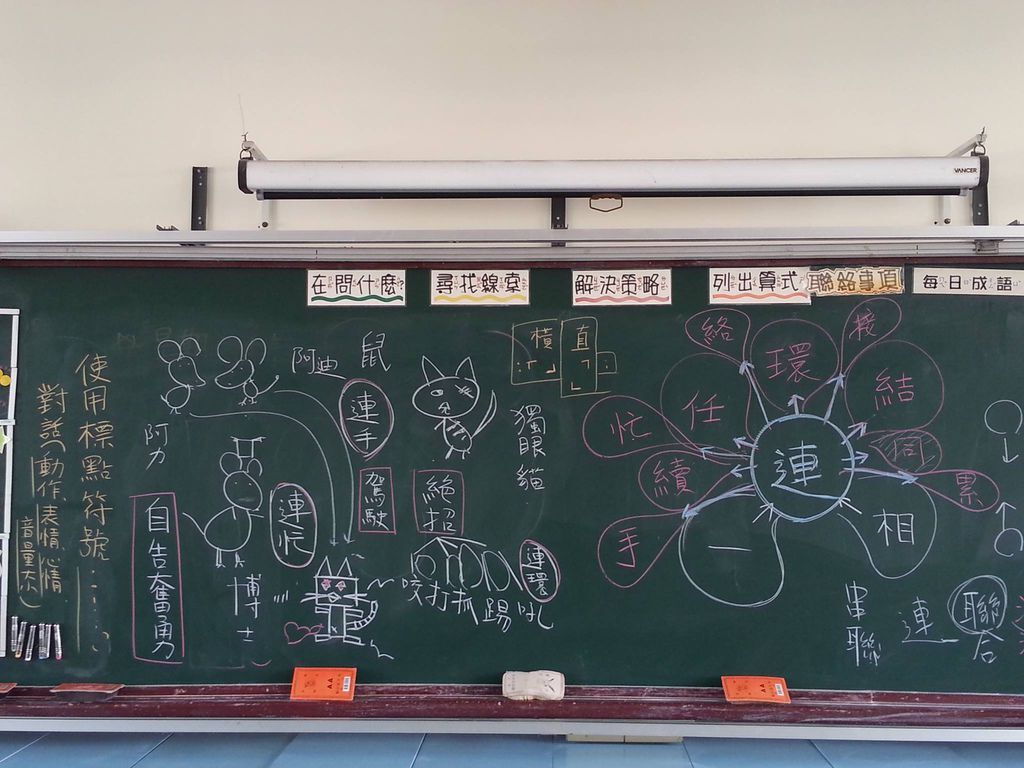 VANCER
在問什麼?
尋找線索
解決策略
列出算式
聯絡事項
每日成語
使用標點符號:……
對話(動作、表情、心情
音量大小)
阿力
自告奮勇
博士
阿迪
鼠
連手
連忙
駕駛
絕招
咬打抓踢吼
連環
獨眼貓
橫
直
連
絡
環
接
任
結
忙
續
累
手
一
相
串聯
連
聯合